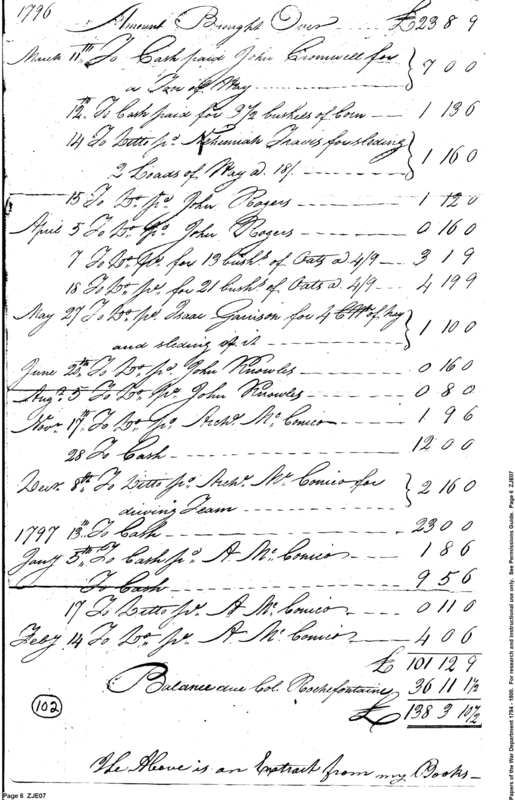 1796 Amount Brought Over £ 23 8 9
March 11th To Cash paid John Cromwell for
a Ton of Hay 7 0 0
12th To Cash paid for 3 1/2 bushels of Corn 1 13 6
14 To Ditto pd. Nehemiah Travis for sleding
2 Loads of Hay a 18/ 1 16 0
15 To Do. pd. John Rogers 1 12 0
April 5 To Do. pd. John Rogers 0 16 0
7 To Do. pd. for 13 bushs. of Oats a 4/9 3 1 9
18 To Do. pd. for 21 bushs. of Oats a 4/9 4 19 9
May 27 To Do. pd. Isaac Garrison for 4 of hay
and sleding of it 1 10 0
June 20th To Do. pd. John Knowles 0 16 0
Augt. 5 To Do. pd. John Knowles 0 8 0
Novr. 17th To Do. pd. Archd. Mc. Conico 1 9 6
28 To Cash 12 0 0
Decr. 8th To Ditto pd. Archd. Mc. Conico for
driving Team 2 16 0
1797 13th To Cash 23 0 0
Jany 5th To Cash pd. A Mc. Conico 1 8 6
To Cash 9 5 6
17 To Ditto pd. A Mc. Conico 0 11 0
Feby 14 To Do. pd. A Mc. Conico 4 0 6
£ 101 12 9
Balance due Col. Rochefontaine 36 11 1 1/2
£ 138 3 10 1/2
102
The Above is an Extract from my Books
Page 6 ZJE07
Papers of the War Department 1784 - 1800. For research and instructional use only. See Permissions Guide. Page 6 ZJE07